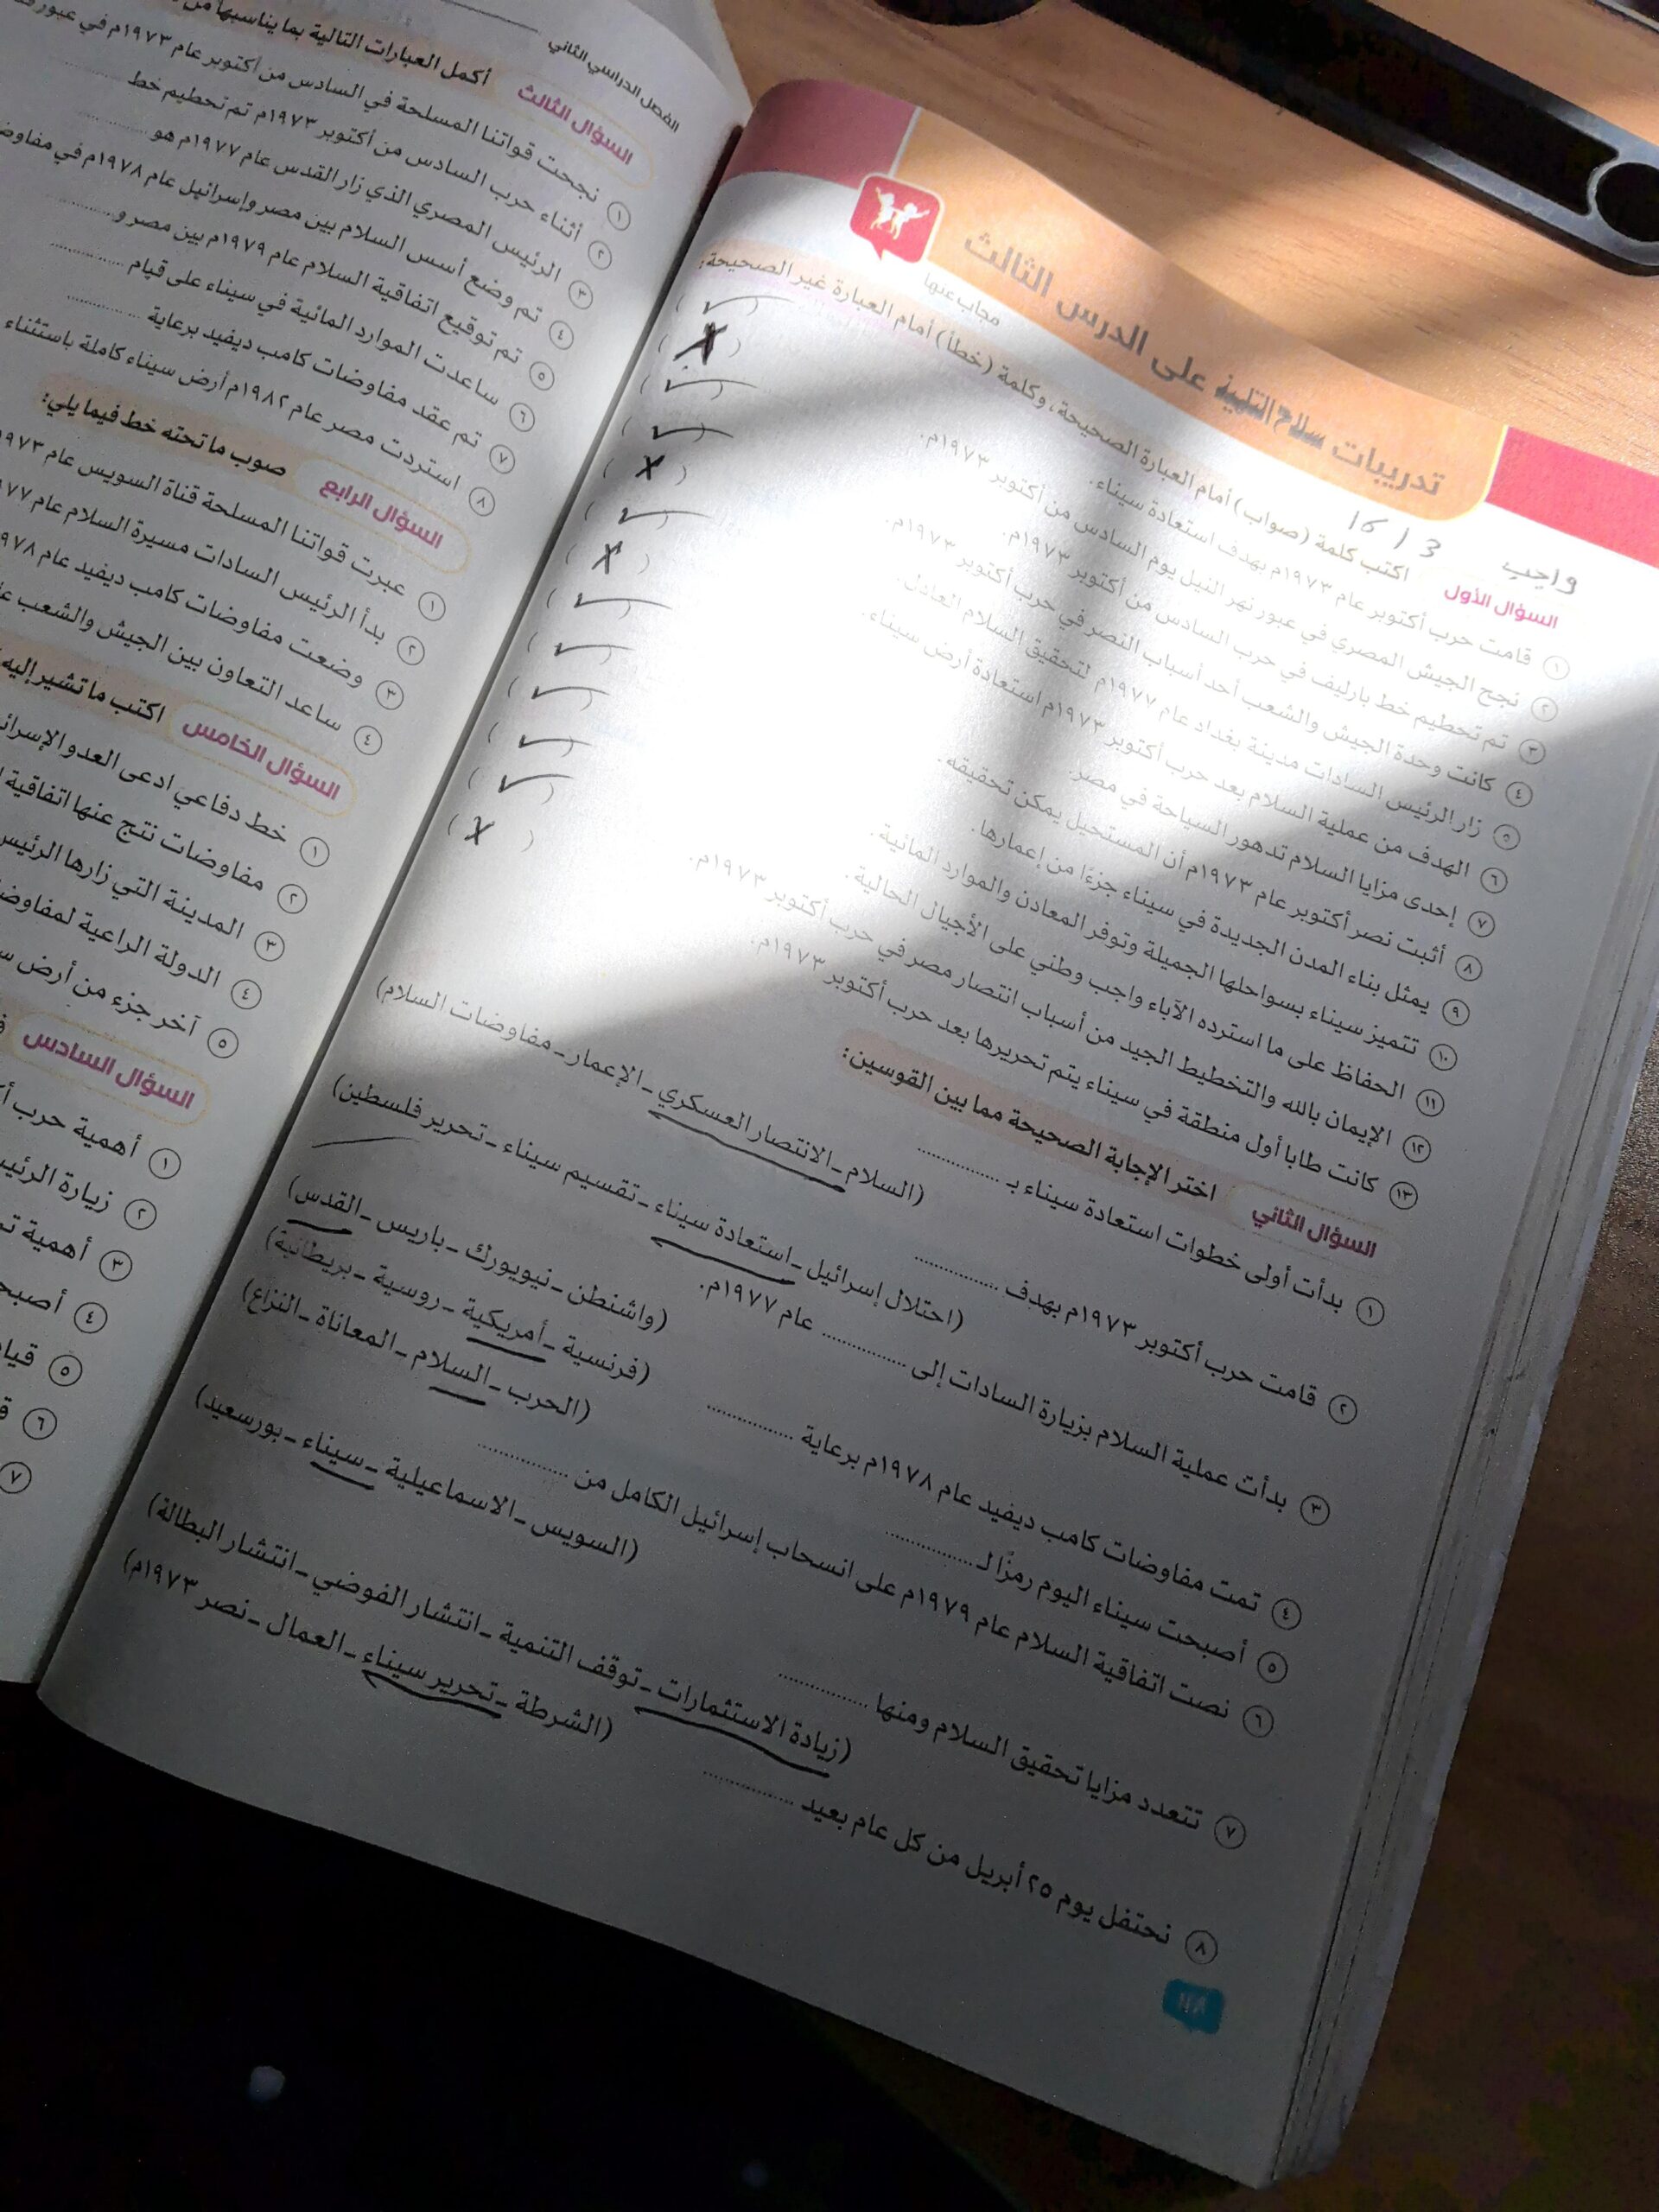 تدريبات سلاح التلميذ على الدرس الثالث
مجاب عنها
واجب 3 / 16
السؤال الأول اكتب كلمة (صواب) أمام العبارة الصحيحة، وكلمة (خطأ) أمام العبارة غير الصحيحة:
١ قامت حرب أكتوبر عام ١٩٧٣م بهدف استعادة سيناء. (✓)
٢ نجح الجيش المصري في عبور نهر النيل يوم السادس من أكتوبر ١٩٧٣م. (X)
٣ تم تحطيم خط بارليف في حرب السادس من أكتوبر ١٩٧٣م. (✓)
٤ كانت وحدة الجيش والشعب أحد أسباب النصر في حرب أكتوبر ١٩٧٣م. (✓)
٥ زار الرئيس السادات مدينة بغداد عام ١٩٧٧م لتحقيق السلام العادل. (X)
٦ الهدف من عملية السلام بعد حرب أكتوبر ١٩٧٣م استعادة أرض سيناء. (✓)
٧ إحدى مزايا السلام تدهور السياحة في مصر. (X)
٨ أثبت نصر أكتوبر عام ١٩٧٣م أن المستحيل يمكن تحقيقه. (✓)
٩ يمثل بناء المدن الجديدة في سيناء جزءًا من إعمارها. (✓)
١٠ تتميز سيناء بسواحلها الجميلة وتوفر المعادن والموارد المائية. (✓)
١١ الحفاظ على ما استرده الآباء واجب وطني على الأجيال الحالية. (✓)
١٢ الإيمان بالله والتخطيط الجيد من أسباب انتصار مصر في حرب أكتوبر ١٩٧٣م. (✓)
١٣ كانت طابا أول منطقة في سيناء يتم تحريرها بعد حرب أكتوبر ١٩٧٣م. (X)
السؤال الثاني اختر الإجابة الصحيحة مما بين القوسين:
١ بدأت أولى خطوات استعادة سيناء بـ ..............
(السلام - الانتصار العسكري - الإعمار - مفاوضات السلام)
٢ قامت حرب أكتوبر ١٩٧٣م بهدف ..............
(احتلال إسرائيل - استعادة سيناء - تقسيم سيناء - تحرير فلسطين)
٣ بدأت عملية السلام بزيارة السادات إلى .............. عام ١٩٧٧م.
(واشنطن - نيويورك - باريس - القدس)
٤ تمت مفاوضات كامب ديفيد عام ١٩٧٨م برعاية ..............
(فرنسية - أمريكية - روسية - بريطانية)
٥ أصبحت سيناء اليوم رمزًا لـ ..............
(الحرب - السلام - المعاناة - النزاع)
٦ نصت اتفاقية السلام عام ١٩٧٩م على انسحاب إسرائيل الكامل من ..............
(السويس - الاسماعيلية - سيناء - بورسعيد)
٧ تتعدد مزايا تحقيق السلام ومنها ..............
(زيادة الاستثمارات - توقف التنمية - انتشار الفوضي - انتشار البطالة)
٨ نحتفل يوم ٢٥ أبريل من كل عام بعيد ..............
(الشرطة - تحرير سيناء - العمال - نصر ١٩٧٣م)
الفصل الدراسي الثاني
السؤال الثالث أكمل العبارات التالية بما يناسبها من
١ نجحت قواتنا المسلحة في السادس من أكتوبر عام ١٩٧٣م في عبور
٢ أثناء حرب السادس من أكتوبر ١٩٧٣م تم تحطيم خط
٣ الرئيس المصري الذي زار القدس عام ١٩٧٧م هو
٤ تم وضع أسس السلام بين مصر وإسرائيل عام ١٩٧٨م في
٥ تم توقيع اتفاقية السلام عام ١٩٧٩م بين مصر و
٦ ساعدت الموارد المائية في سيناء على قيام
٧ تم عقد مفاوضات كامب ديفيد برعاية
٨ استردت مصر عام ١٩٨٢م أرض سيناء كاملة باستثناء
السؤال الرابع صوب ما تحته خط فيما يلي:
١ عبرت قواتنا المسلحة قناة السويس عام
٢ بدأ الرئيس السادات مسيرة السلام عام
٣ وضعت مفاوضات كامب ديفيد عام
٤ ساعد التعاون بين الجيش والشعب
السؤال الخامس اكتب ما تشير إليه
١ خط دفاعي ادعى العدو
٢ مفاوضات نتج عنها اتفاقية
٣ المدينة التي زارها الرئيس
٤ الدولة الراعية
٥ آخر جزء من أرض
السؤال السادس
١ أهمية حرب
٢ زيارة
٣ أهمية
٤
٥
٦
٧